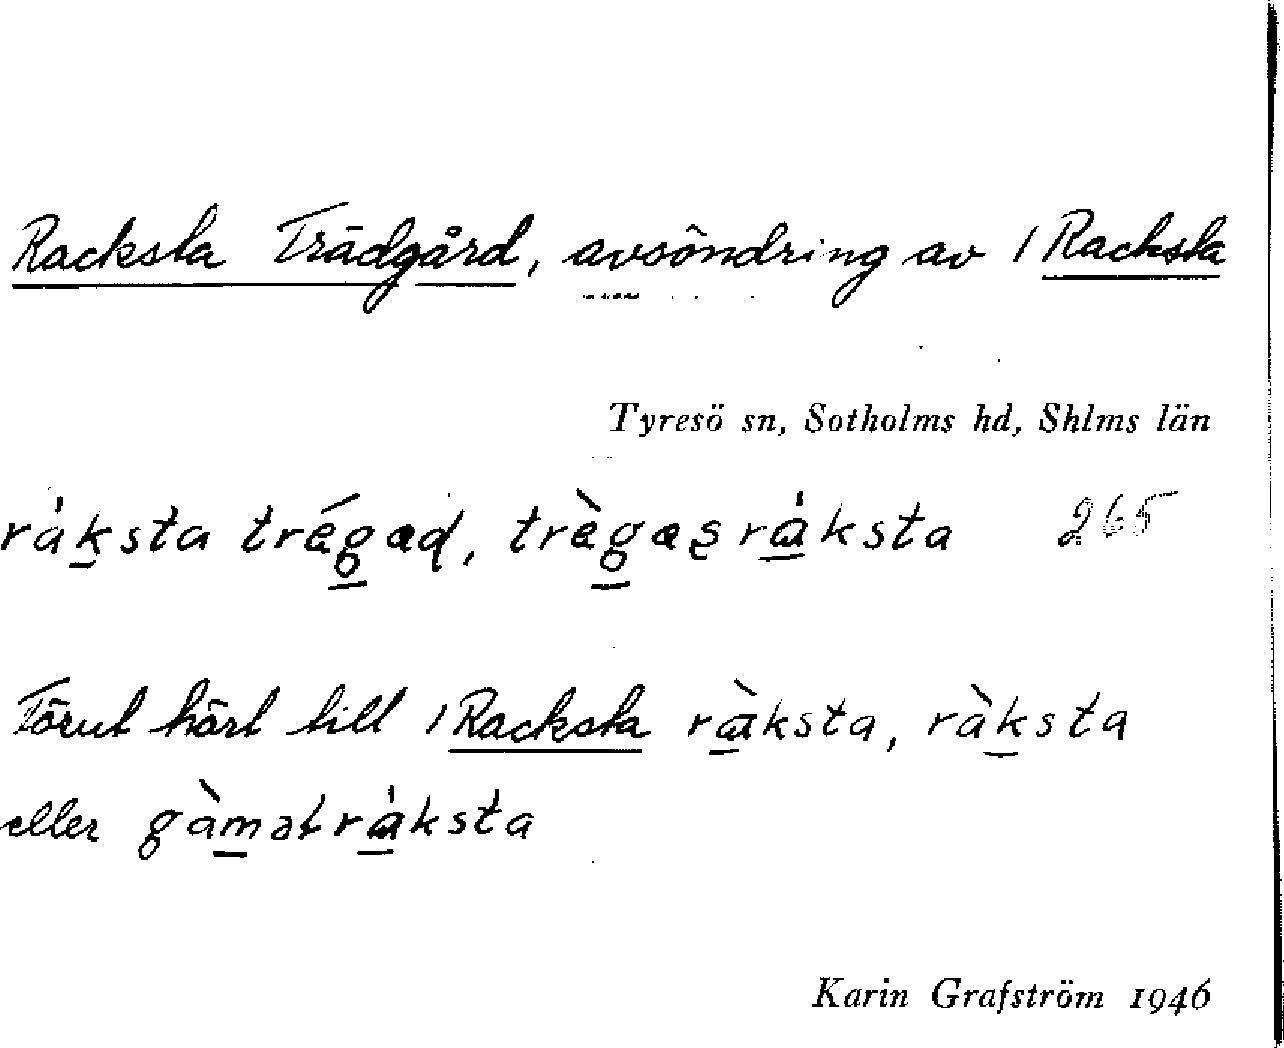 Racksta Trädgård, avsöndring av 1 Racksta
Tyresö sn, Sotholms hd, Shlms län
ràksta trégad, trègasràksta 265
Förut hört till 1 Racksta ràksta, ràksta
eller gàmalràksta
Karin Grafström 1946